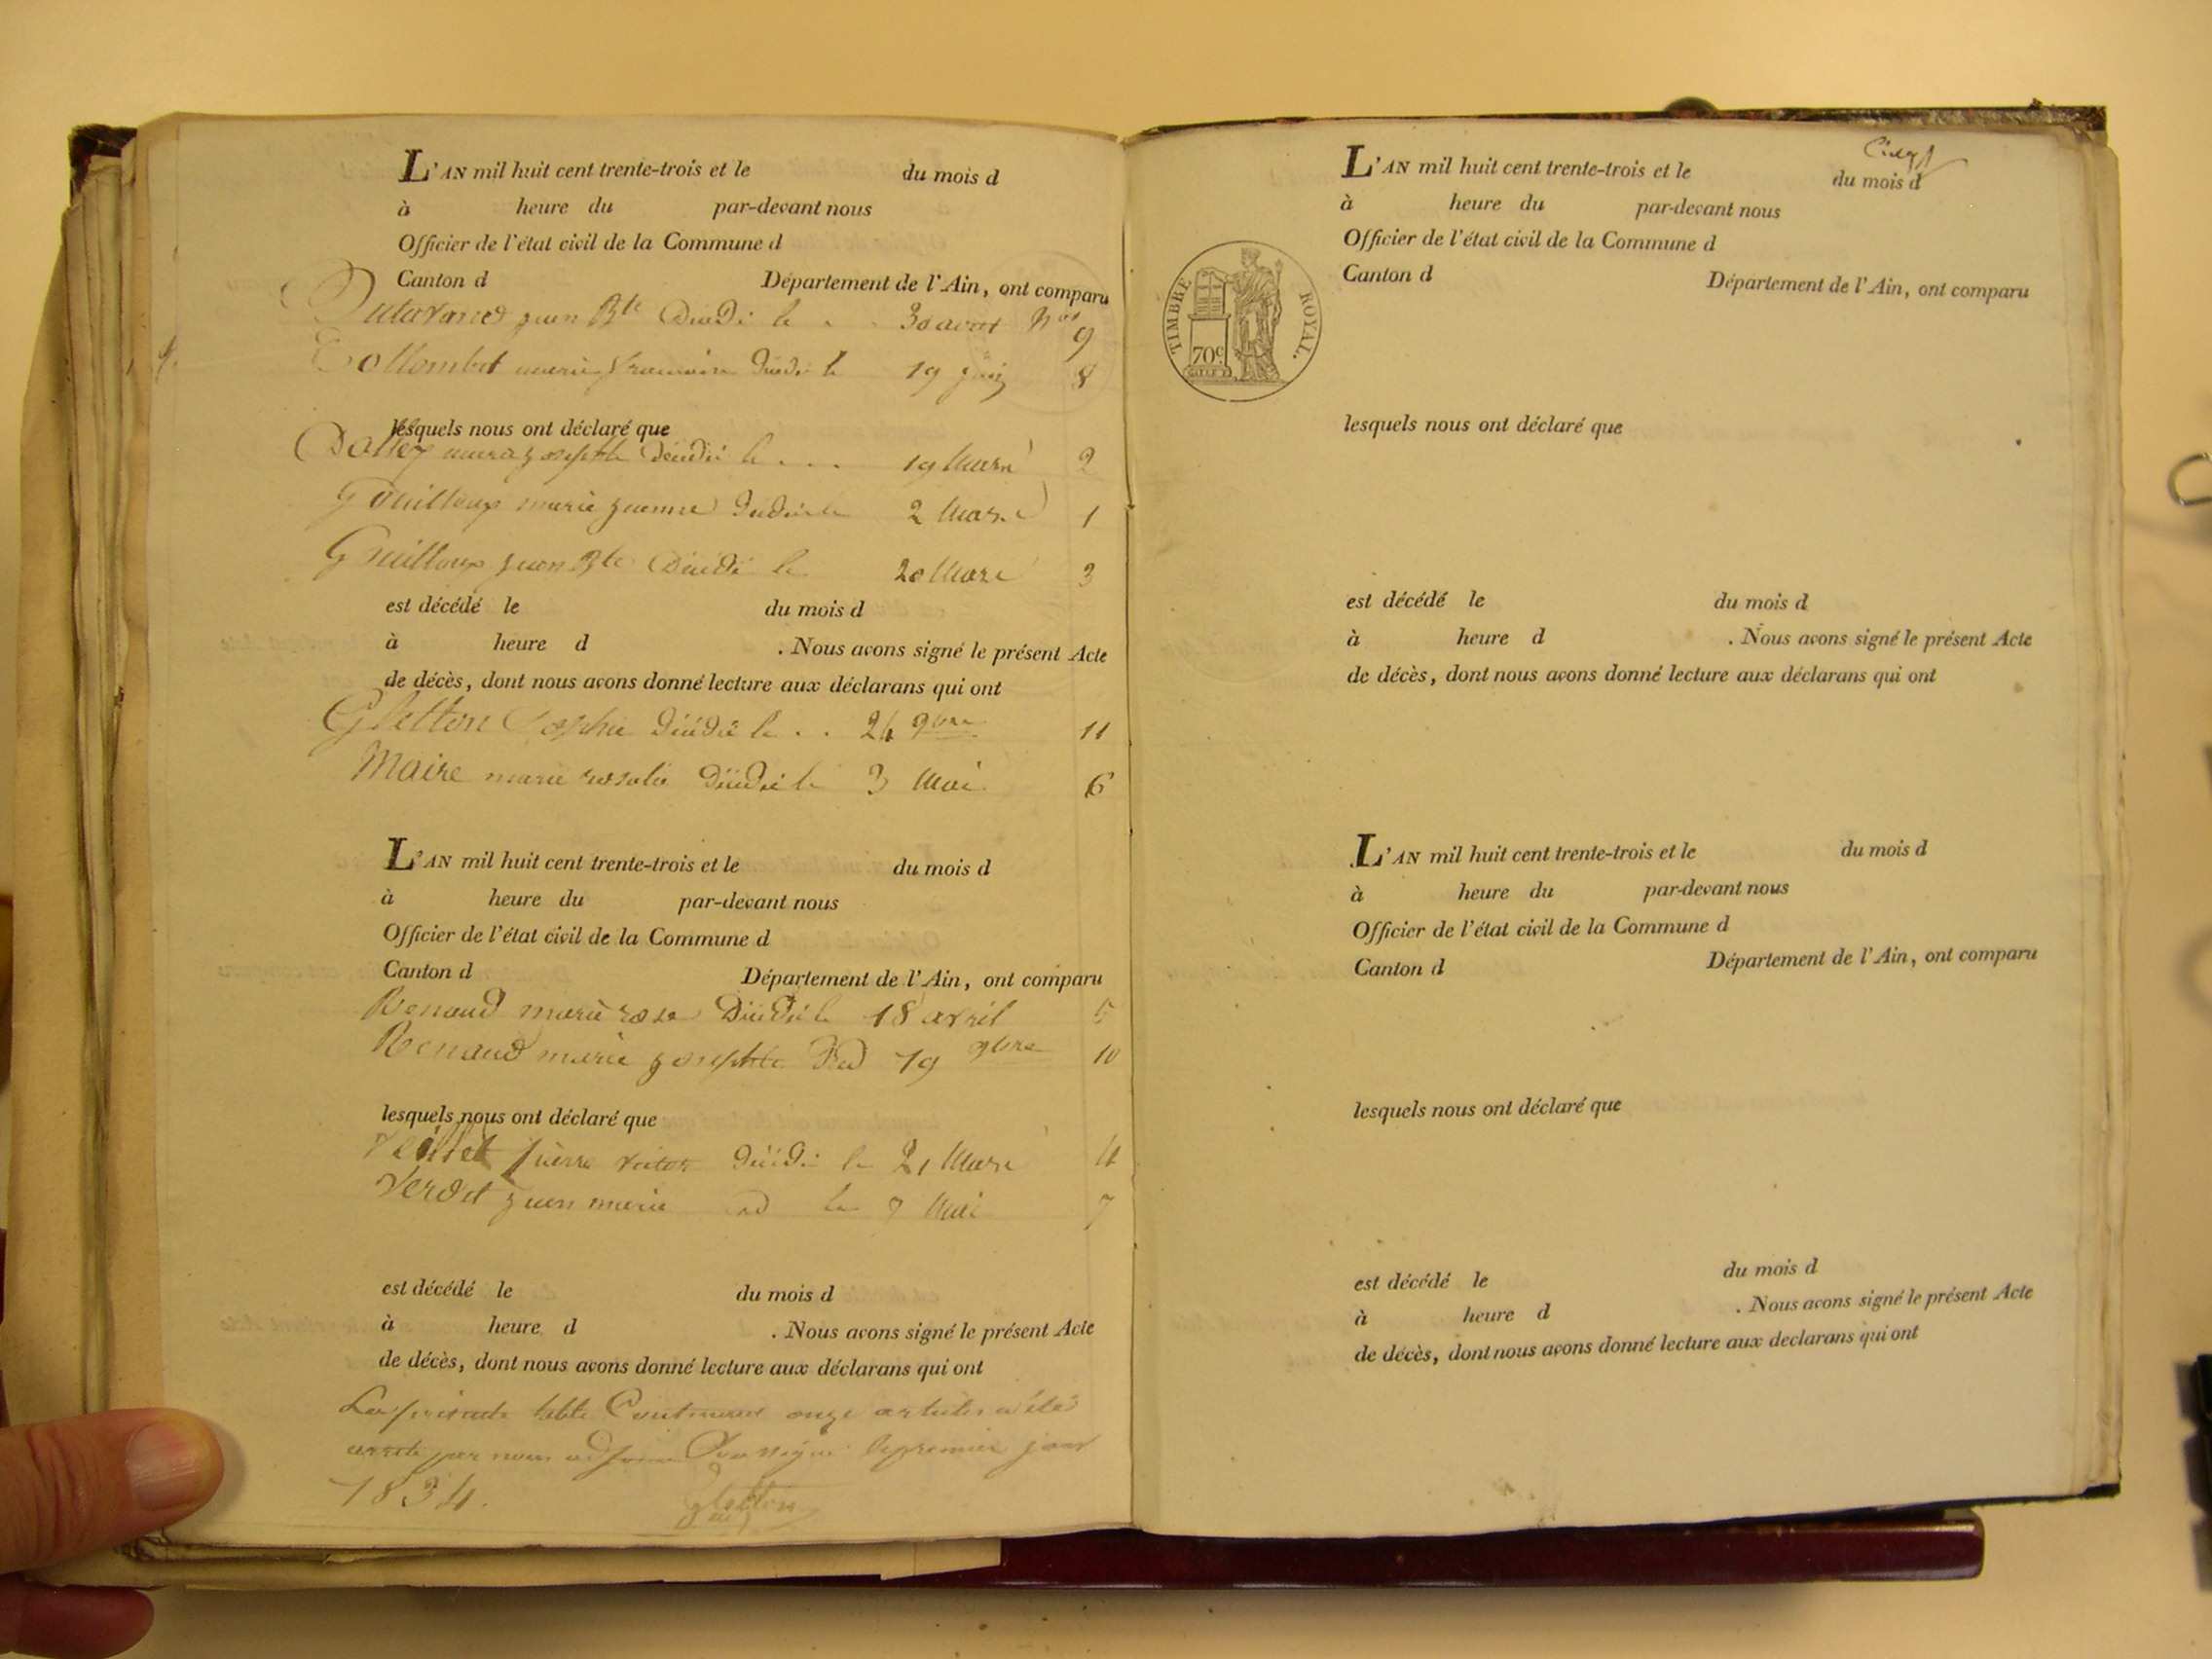 L'AN mil huit cent trente-trois et le du mois d
à heure du par-devant nous
Officier de l'état civil de la Commune d
Canton d Département de l'Ain, ont comparu
jean Bte Décédé le . . 30 aout Nos 9
Collombet marie françoise Décédé le 19 juin 8
lesquels nous ont déclaré que
josephte Décédé le . . . 19 Mars 2
Gouilloux marie jeanne Décédé le 2 Mars 1
Guilloux jean Bte Décédé le 20 Mars 3
est décédé le du mois d
à heure d . Nous avons signé le présent Acte
de décès, dont nous avons donné lecture aux déclarans qui ont
Gletton Josephe Décédé le . . 24 9bre 11
Maire marie rosalie Décédé le 3 Mai 6
L'AN mil huit cent trente-trois et le du mois d
à heure du par-devant nous
Officier de l'état civil de la Commune d
Canton d Département de l'Ain, ont comparu
Renaud marie rose Décédé le 18 avril 5
Renaud marie josephte 19 9bre 10
lesquels nous ont déclaré que
pierre victor Décédé le 21 Mars 4
Verdet jean marie le 7 Mai 7
est décédé le du mois d
à heure d . Nous avons signé le présent Acte
de décès, dont nous avons donné lecture aux déclarans qui ont
La présente table Contenant onze articles a été
arrete par nous adjoint Soussigné le premier janv
1834.
Gletton
L'AN mil huit cent trente-trois et le du mois d
à heure du par-devant nous
Officier de l'état civil de la Commune d
Canton d Département de l'Ain, ont comparu
TIMBRE ROYAL.
70c
lesquels nous ont déclaré que
est décédé le du mois d
à heure d . Nous avons signé le présent Acte
de décès, dont nous avons donné lecture aux déclarans qui ont
L'AN mil huit cent trente-trois et le du mois d
à heure du par-devant nous
Officier de l'état civil de la Commune d
Canton d Département de l'Ain, ont comparu
lesquels nous ont déclaré que
est décédé le du mois d
à heure d . Nous avons signé le présent Acte
de décès, dont nous avons donné lecture aux declarans qui ont